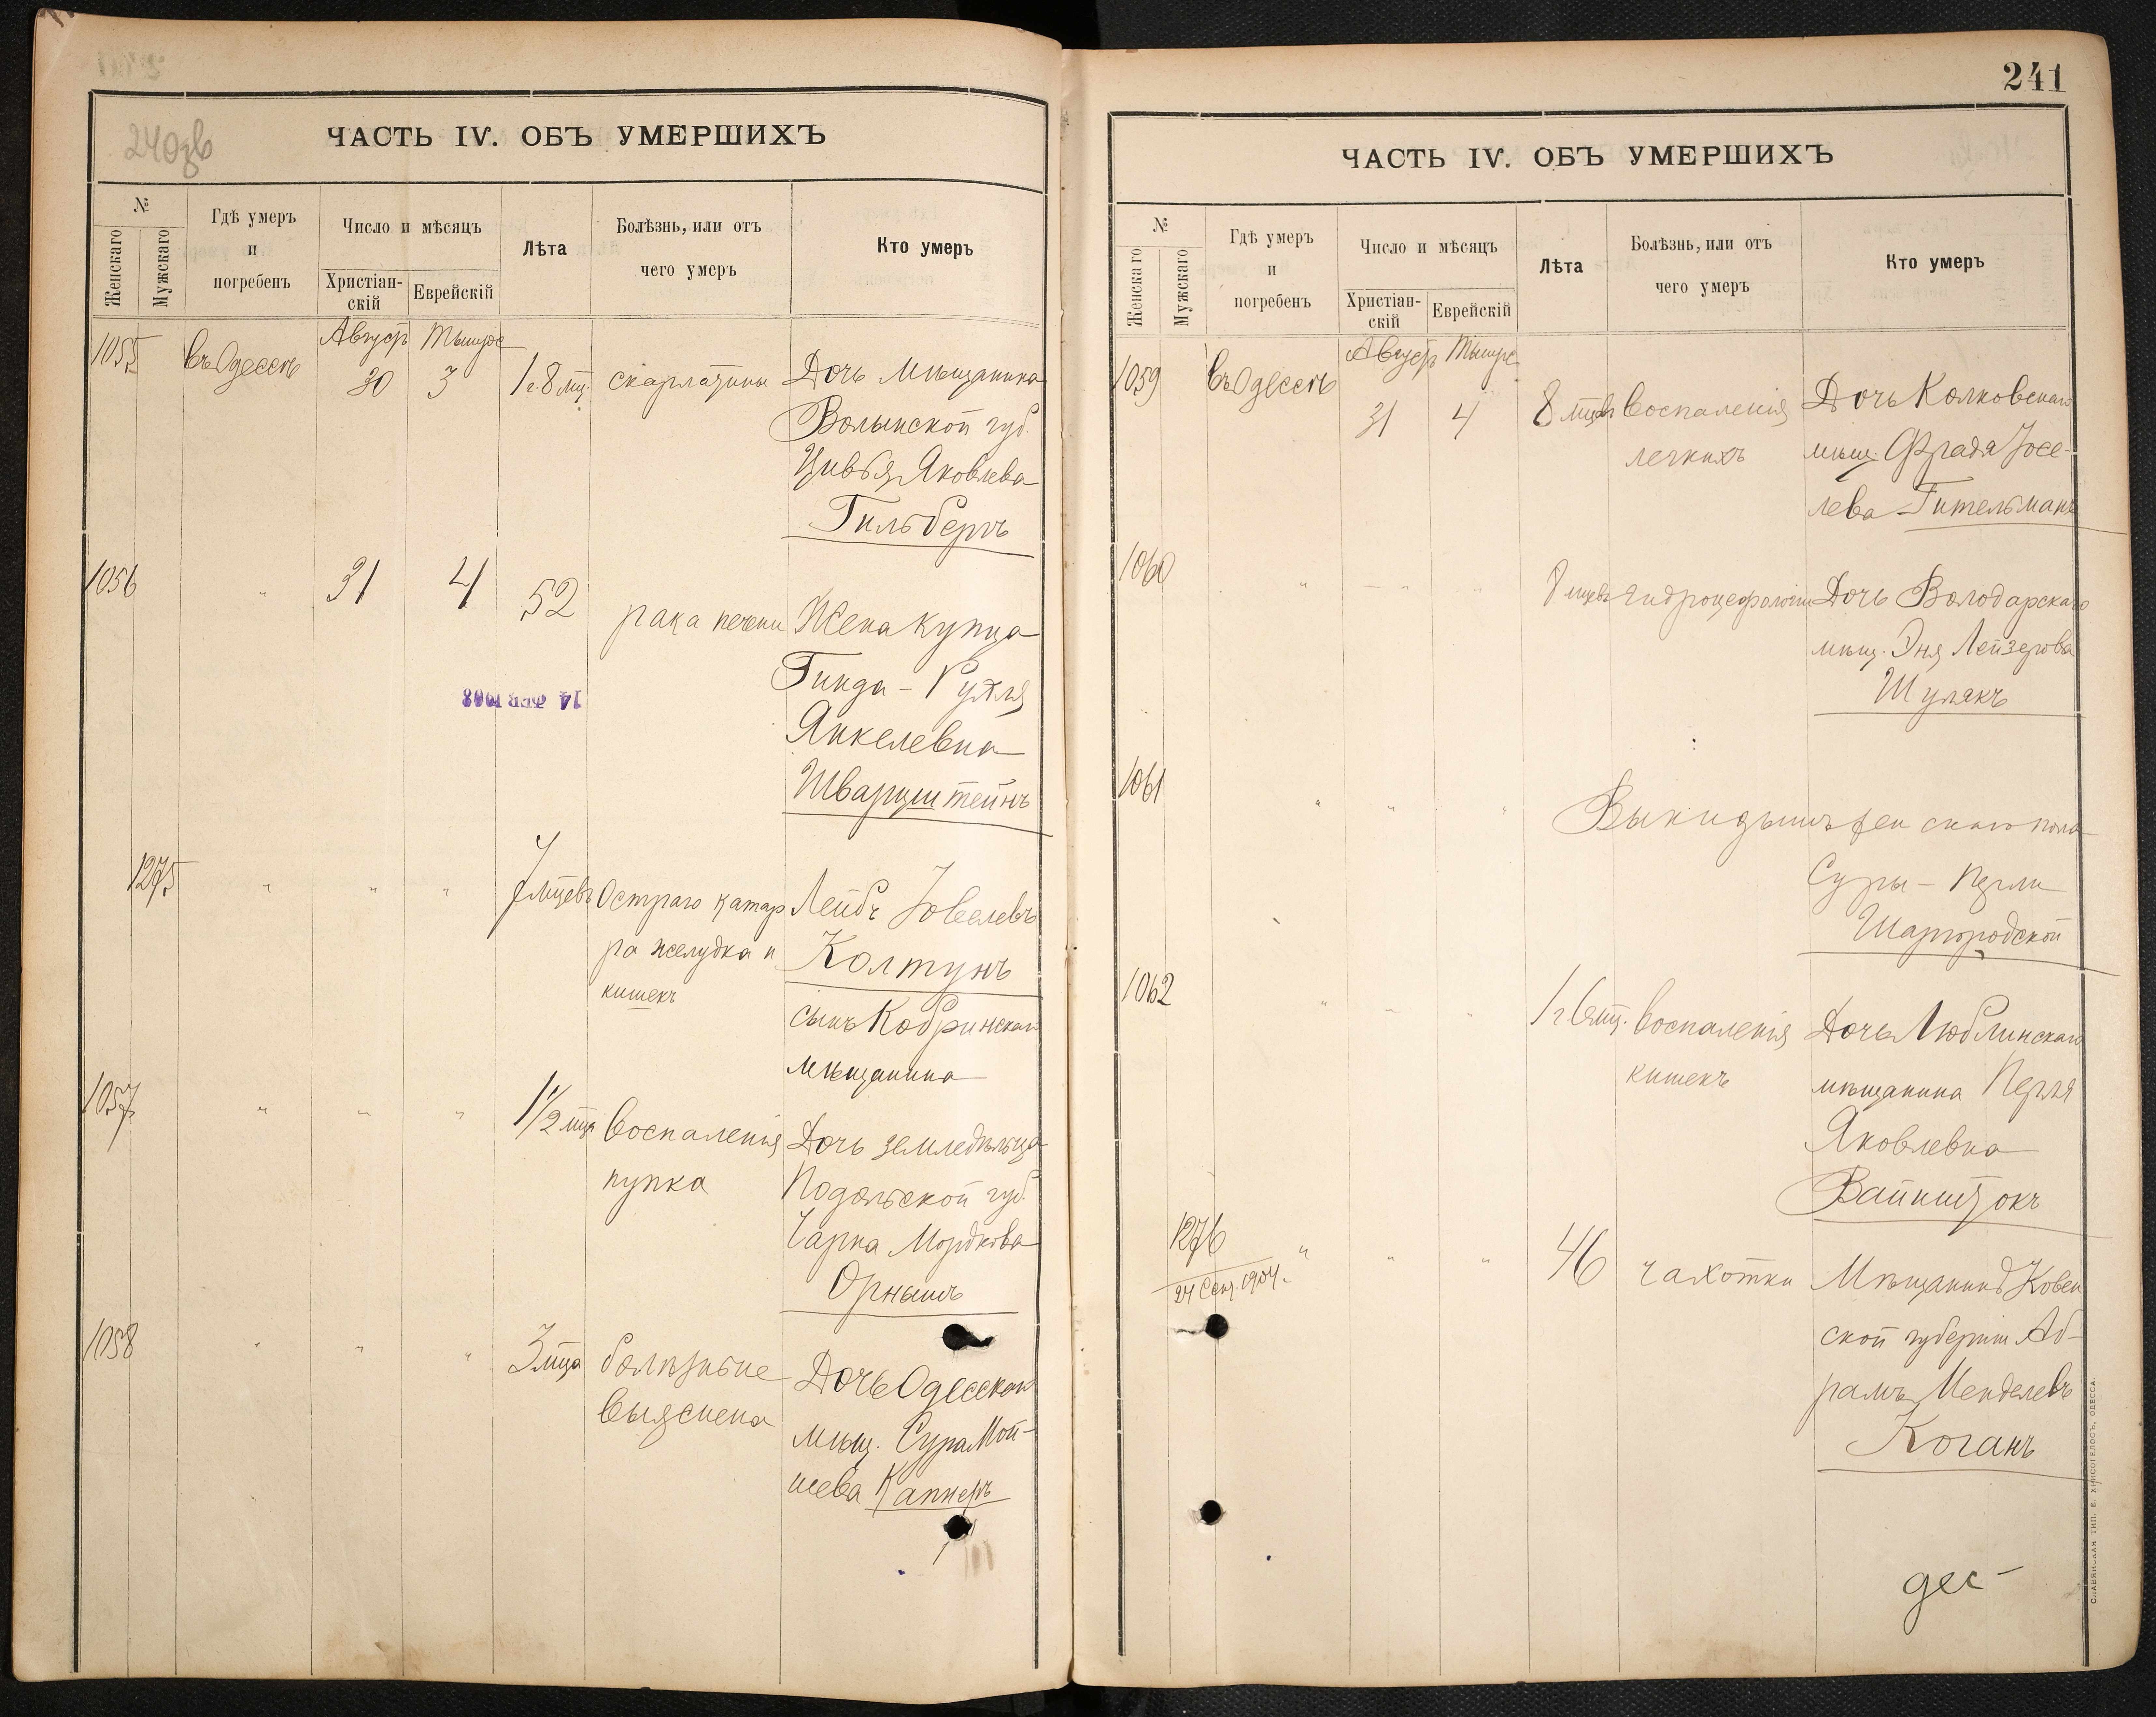 240зв
ЧАСТЬ IV. ОБЪ УМЕРШИХЪ
№
Женскаго
Мужскаго
Гдѣ умеръ
и
погребенъ
Число и мѣсяцъ
Христіан-
скій
Еврейскій
Лѣта
Болѣзнь, или отъ
чего умеръ
Кто умеръ
Август Тишре
1055 въ Одессѣ 30 3 1 г. 8 мц. скарлатины Дочь мѣщанина
Волынской губ.
Цивья Яковлева
Гильбертъ
1056 " 31 4 52 рака печени Жена купца
Гинда - Рухля
Янкелевна
Шварцштейнъ
14 ФЕВ 1908
1275 " " " 7 мцевъ Остраго катар Лейбъ Іовелевъ
ра желудка и Колтунъ
кишекъ
сынъ Кобринскаго
мѣщанина
1057 " " " 1 1/2 мца воспаленія Дочь земледѣльца
пупка Подольской губ.
Чарна Мордкова
Орнышъ
1058 " " " 3 мца болѣзнь не Дочь Одесскаго
выяснена мѣщ. Сура Мой-
шева Каппелъ
241
ЧАСТЬ IV. ОБЪ УМЕРШИХЪ
№
Женскаго
Мужскаго
Гдѣ умеръ
и
погребенъ
Число и мѣсяцъ
Христіан-
скій
Еврейскій
Лѣта
Болѣзнь, или отъ
чего умеръ
Кто умеръ
Август Тишре
1059 въ Одессѣ 31 4 8 мцевъ Воспаленія Дочь Колковскаго
легкихъ мѣщ. Фрадя Іосе-
лева Гительманъ
1060 " " " 8 мцевъ Дочь Володарскаго
мѣщ. Эня Лейзерова
Шулякъ
1061 " " " Выкидышъ женскаго пола
Суры - Перли
Шаргородской
1062 " " " 1 г. 6 мц. воспаленія Дочь Люблинскаго
кишекъ мѣщанина Перля
Яковлевна
Вайнштокъ
1276 " " " 46 чахотки Мѣщанинъ Ковен
24 Сент. 1904.
ской губерніи Аб-
рамъ Менделевъ
Коганъ
дес-
СЛАВЯНСКАЯ ТИП. Е. ХРИСОГЕЛОСЪ, ОДЕССА.